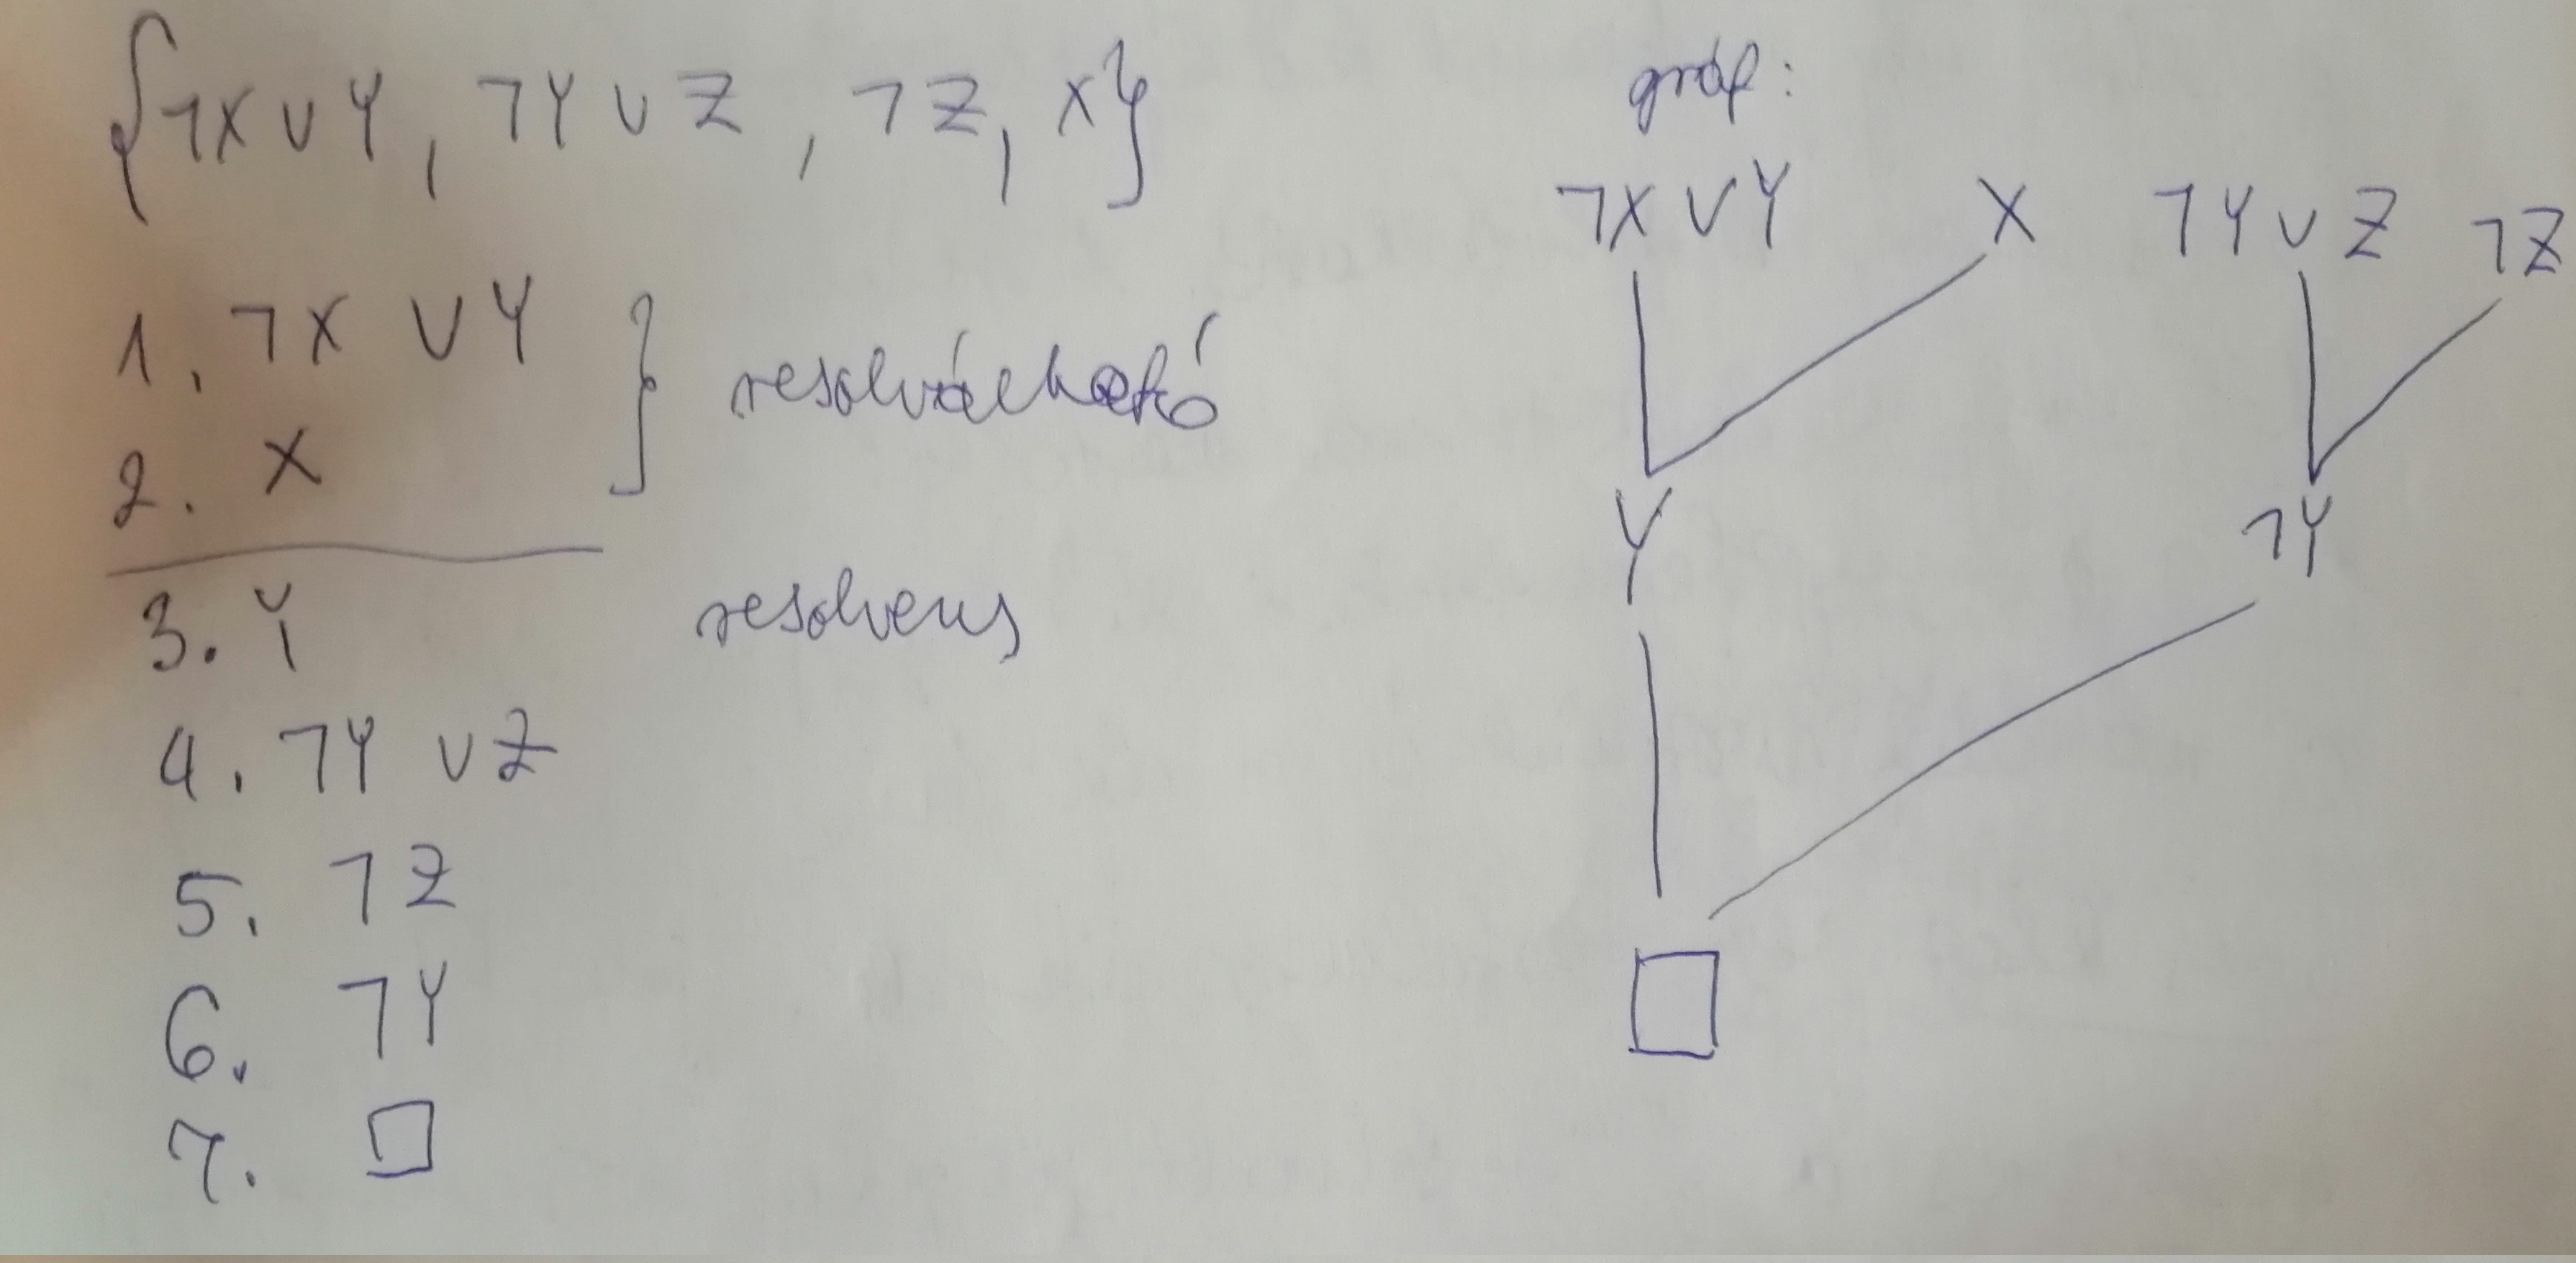 {¬X ∨ Y, ¬Y ∨ Z, ¬Z, X}
1. ¬X ∨ Y
2. X
resolválható
3. Y
resolvens
4. ¬Y ∨ Z
5. ¬Z
6. ¬Y
7. □
gráf:
¬X ∨ Y X ¬Y ∨ Z ¬Z
Y ¬Y
□